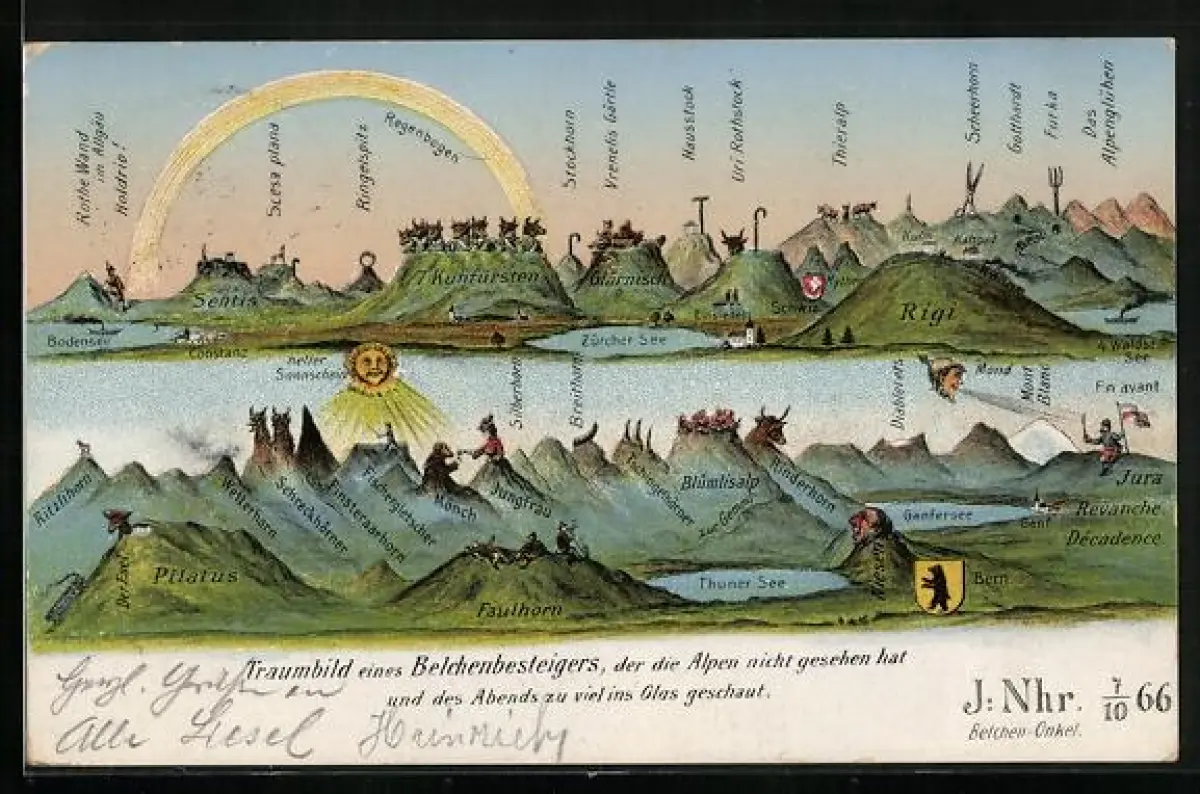 Rothe Wand
im Allgäu
Holdrio!
Scesa plana
Ringelspitz
Regenbogen
Stockhorn
Vrenelis Gärtle
Hausstock
Uri Rothstock
Thieralp
Scheerhorn
Gotthardt
Furka
Das
Alpenglühen
Sentis
7 Kuhfürsten
Glärnisch
Schwiz
Rigi
Bodensee
Constanz
Zürcher See
4 Waldst.
See
heller
Sonnschein
Silberhorn
Breithorn
Diablerets
Mond
Mont
Blanc
En avant
Ritzlihorn
Wetterhorn
Schreckhörner
Finsteraarhorn
Fischergletscher
Mönch
Jungfrau
Blümlisalp
Zur Gemmi
Rinderhorn
Jura
Genfersee
Genf
Revanche
Décadence
Der Esel
Pilatus
Faulhorn
Thuner See
Niesen
Bern
Traumbild eines Belchenbesteigers, der die Alpen nicht gesehen hat
und des Abends zu viel ins Glas geschaut.
J: Nhr. 7/10 66
Belchen-Onkel.
Herzl. Grüße an
Alle Liesel Heinrich